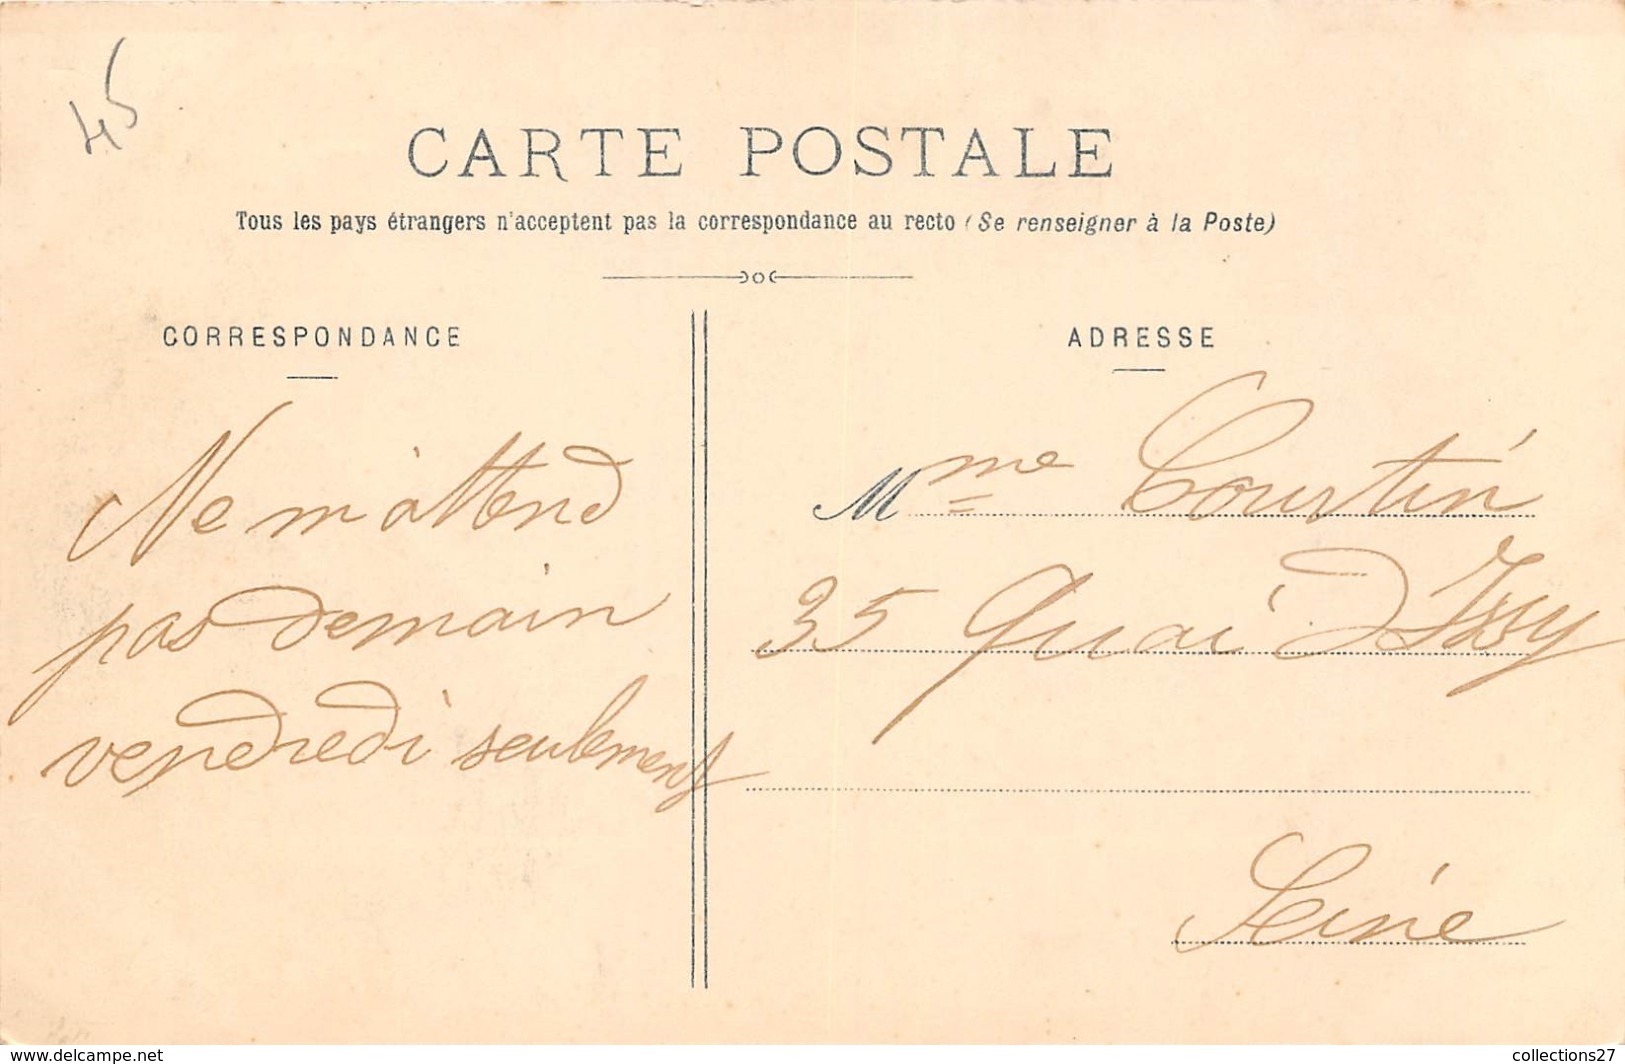 45
CARTE POSTALE
Tous les pays étrangers n'acceptent pas la correspondance au recto (Se renseigner à la Poste)
CORRESPONDANCE
Ne m'attend
pas demain
vendredi seulement
ADRESSE
Mme Courtin
35 Quai d'Issy
Seine
www.delcampe.net
collections27